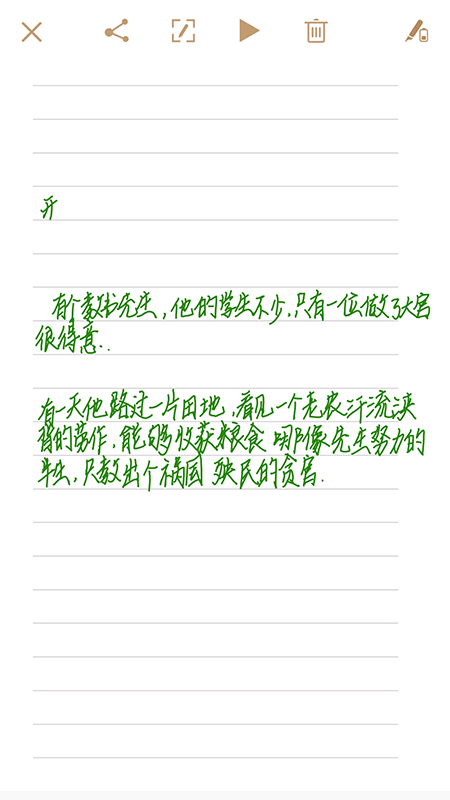 开
有个教书先生,他的学生不少,只有一位做了大官
很得意..
有一天他路过一片田地,看见一个老农汗流浃
背的劳作,能够收获粮食 哪像先生努力的
半生,只教出个祸国 殃民的贪官.